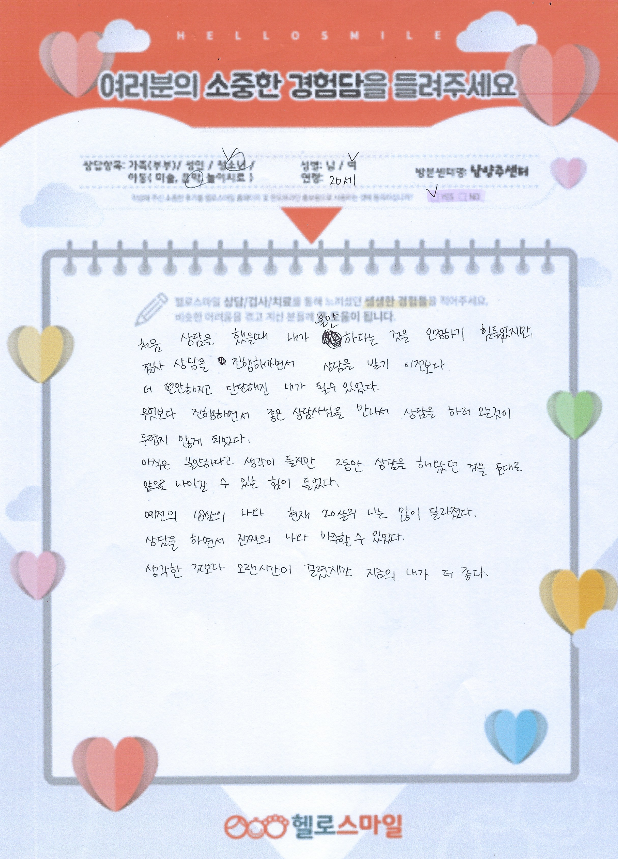 HELLOSMILE
여러분의 소중한 경험담을 들려주세요
상담항목: 가족(부부)/ 성인 / 청소년 /
아동( 미술, 놀이치료 )
성별: 남 / 여
연령: 20세
방문센터명: 남양주센터
YES NO
헬로스마일 상담/검사/치료를 통해 느끼셨던 생생한 경험들을 적어주세요.
비슷한 어려움을 겪고 계신 분들께 도움이 됩니다.
불안
처음 상담을 했을때 내가 하다는 것을 인정하기 힘들었지만
검사 상담을 진행하면서 상담을 받기 이전보다
더 편안해지고 단단해진 내가 될수 있었다.
무엇보다 진행하면서 좋은 상담사님을 만나서 상담을 하러 오는것이
두렵지 않게 되었다.
아직은 불안하다고 생각이 들지만 그동안 상담을 해왔던 것을 토대로
앞으로 나아갈 수 있는 힘이 들었다.
예전의 18살의 나와 현재 20살의 나는 많이 달라졌다.
상담을 하면서 진짜의 나와 마주할 수 있었다.
생각한 것보다 오랜시간이 걸렸지만 지금의 내가 더 좋다.
헬로스마일